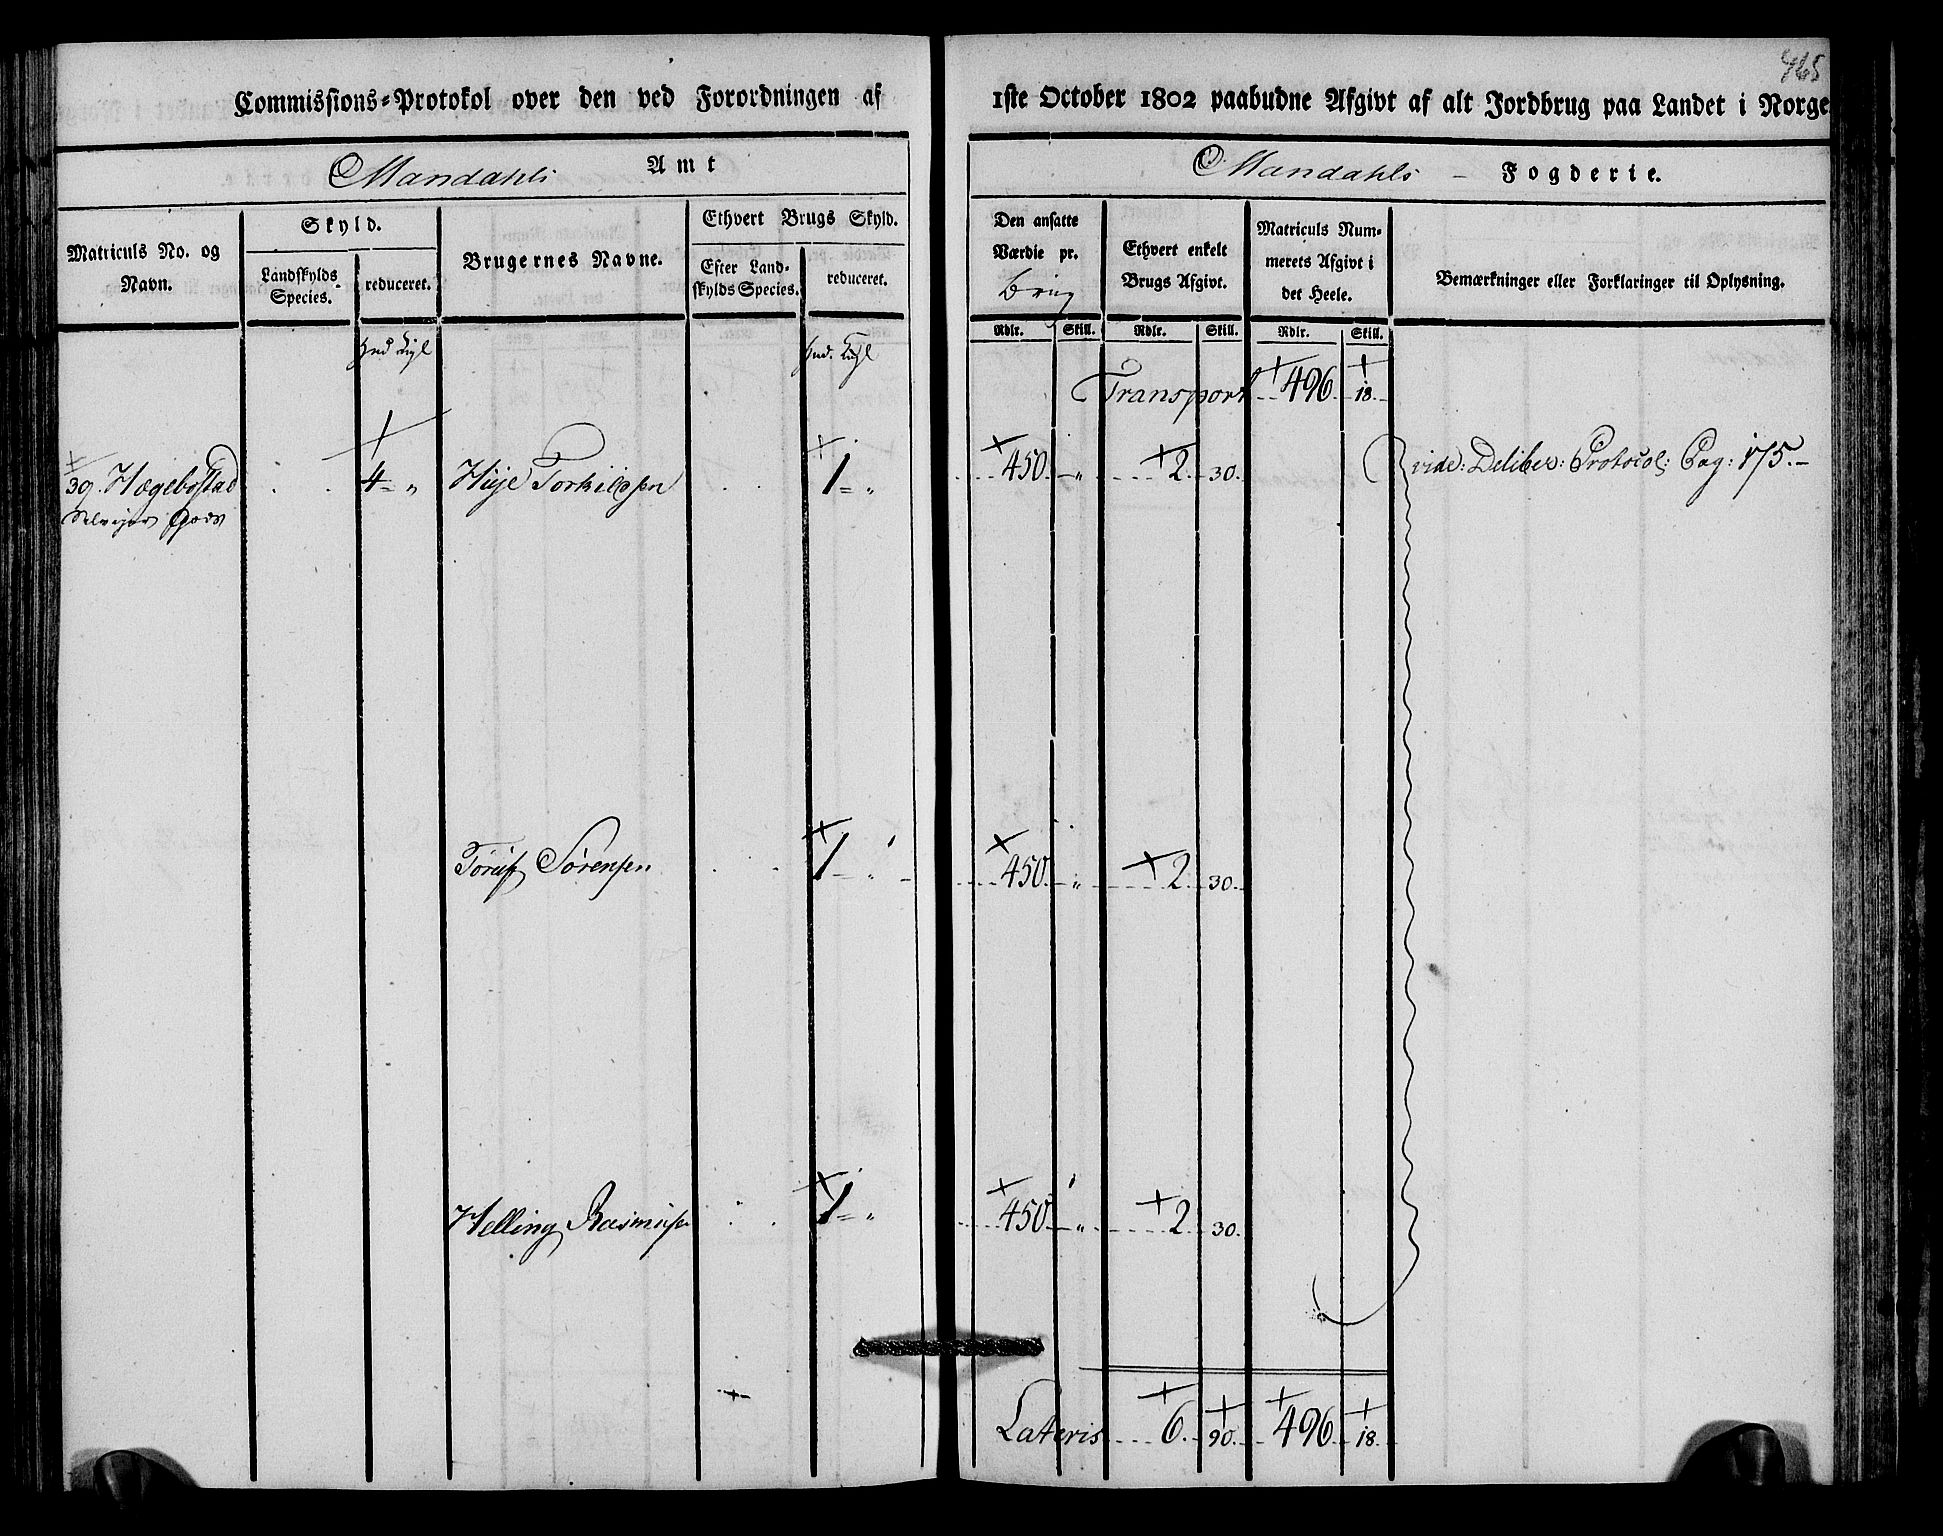 465
Commissions-Protokol over den ved Forordningen af 1ste October 1802 paabudne Afgivt af alt Jordbrug paa Landet i Norge
Mandahls Amt
Mandahls Fogderie.
Matriculs No. og Navn.
Skyld.
Landskylds Species.
reduceret.
Brugernes Navne.
Ethvert Brugs Skyld.
Efter Landskylds Species.
reduceret.
Den ansatte Værdie pr. brug
Ethvert enkelt Brugs Afgivt.
Matriculs Nummerets Afgivt i det Heele.
Bemærkninger eller Forklaringer til Oplysning.
Rdlr. Skill. Rdlr. Skill. Rdlr. Skill.
Transport 496 18
39. Hægebostad 4 = " Torkildsen 1 = " 450 " 2 30 vide: Deliber: Protocol: Pag: 175.
Gods
Sørensen 1 = " 450 " 2 30
Helling Rasmusen 1 = " 450 " 2 30
Lateris 6 90 496 18